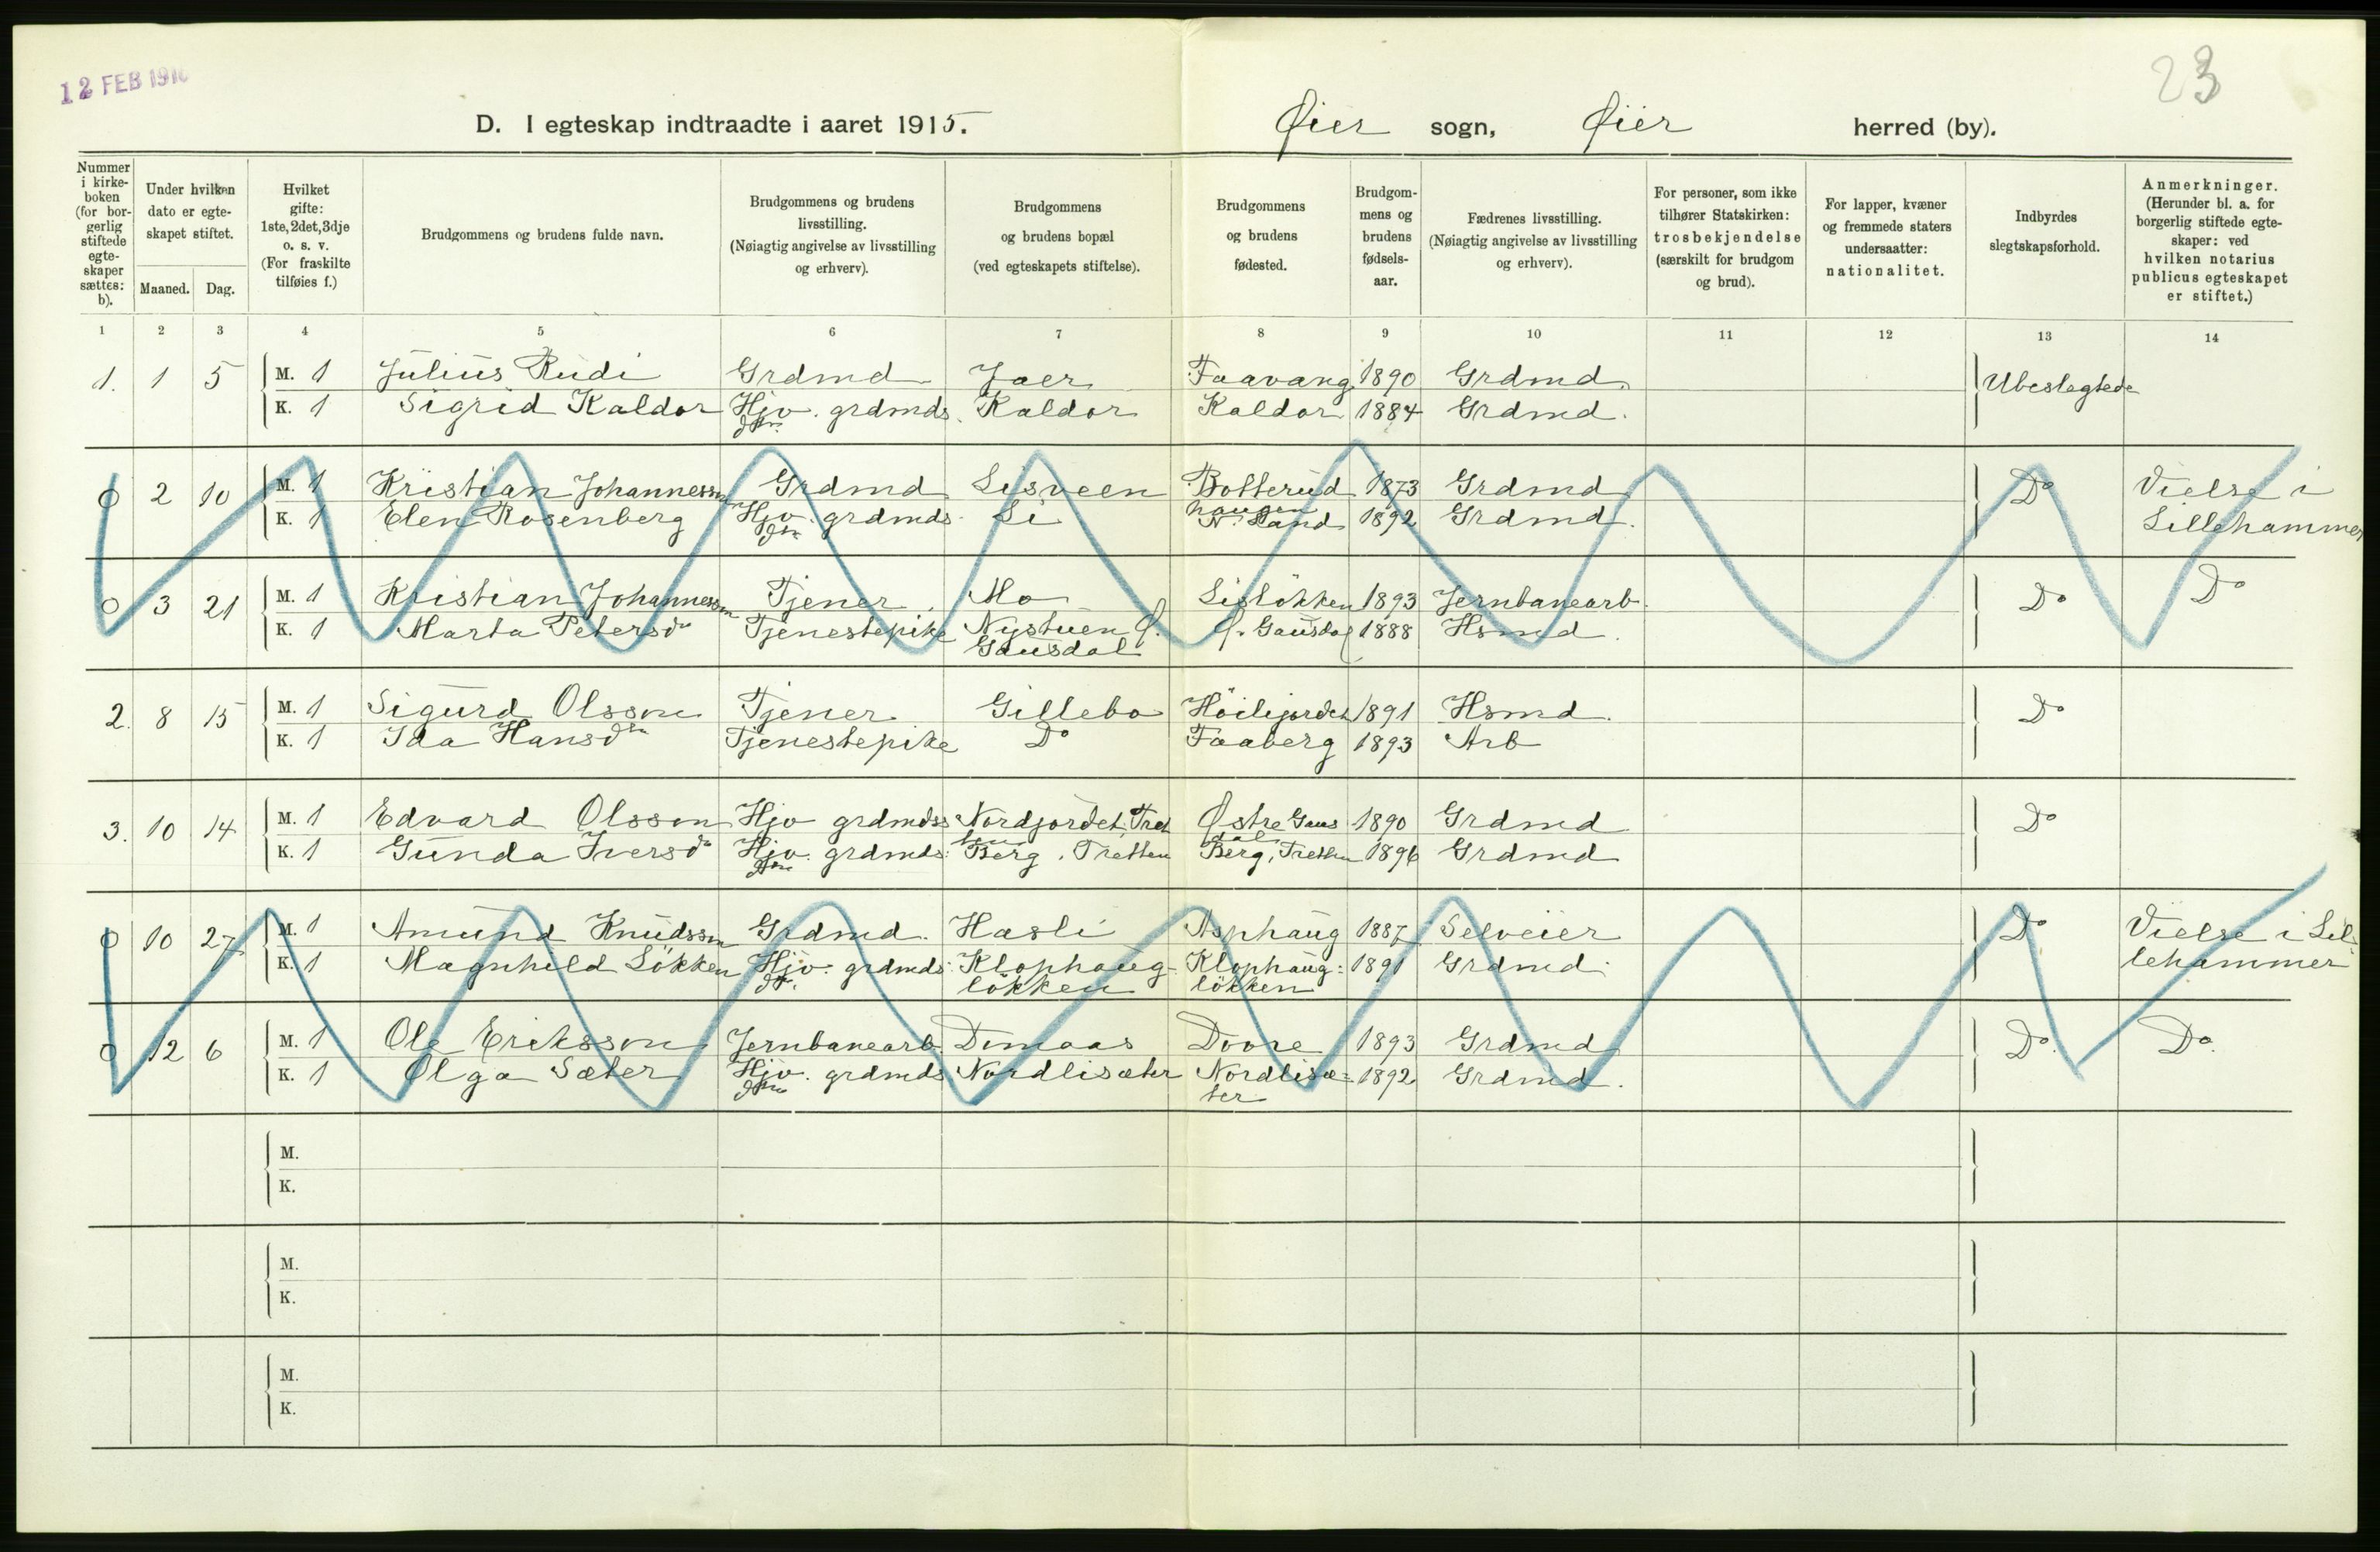 12 FEB 191
23
D. I egteskap indtraadte i aaret 1915. Øier sogn, Øier herred (by).
Nummer i kirkeboken (for borgerlig stiftede egteskaper sættes: b).
Under hvilken dato er egteskapet stiftet.
Maaned. Dag.
Hvilket gifte: 1ste, 2det, 3dje o. s. v. (For fraskilte tilføies f.)
Brudgommens og brudens fulde navn.
Brudgommens og brudens livsstilling. (Nøiagtig angivelse av livsstilling og erhverv).
Brudgommens og brudens bopæl (ved egteskapets stiftelse).
Brudgommens og brudens fødested.
Brudgommens og brudens fødselsaar.
Fædrenes livsstilling. (Nøiagtig angivelse av livsstilling og erhverv).
For personer, som ikke tilhører Statskirken: trosbekjendelse (særskilt for brudgom og brud).
For lapper, kvæner og fremmede staters undersaatter: nationalitet.
Indbyrdes slegtskapsforhold.
Anmerkninger. (Herunder bl. a. for borgerlig stiftede egteskaper: ved hvilken notarius publicus egteskapet er stiftet.)
1 2 3 4 5 6 7 8 9 10 11 12 13 14
1. 1 5 M. 1 Julius Rudi Grdmd Jaer Faavang 1890 Grdmd. Ubeslegtede
K. 1 Sigrid Kaldor Hjv. grdmds. dtr. Kaldor Kaldor 1884 Grdmd.
0 2 10 M. 1 Kristian Johannessen Grdmd Lisveen Botterudhaugen 1873 Grdmd Do Vielse i
K. 1 Elen Rosenberg Hjv. grdmds. dtr Li N. Sand 1892 Grdmd. Lillehammer
0 3 21 M. 1 Kristian Johannessen Tjener Mo Lisløkken 1893 Jernbanearb. Do Do
K. 1 Marta Petersdtr Tjenestepike Nystuen Ø. Gausdal Ø. Gausdal 1888 Hsmd.
2. 8 15 M. 1 Sigurd Olsson Tjener Gillebo 1891 Hsmd. Do
K. 1 Ida Hansdtr Tjenestepike Do Faaberg 1893 Arb
3. 10 14 M. 1 Edvard Olsson Hjv grdmdss Nordjordet, Tretten Østre Gausdal 1890 Grdmd Do
K. 1 Gunda Iversdtr Hjv. grdmds: dtr Berg, Tretten Berg, Tretten 1896 Grdmd
0 10 27 M. 1 Amund Knudssen Grdmd. Hasli Asphaug 1887 Selveier Do Vielse i Lil-
K. 1 Magnhild Løkken Hjv. grdmds: dtr. Klophaug-løkken Klophaug:løkken 1891 Grdmd. lehammer
0 12 6 M. 1 Ole Eriksson Jernbanearb. Domaas Dovre 1893 Grdmd Do. Do.
K. 1 Olga Sæter Hjv. grdmds dtr Nordlisæter Nordlisæ:ter 1892 Grdmd.
M.
K.
M.
K.
M.
K.